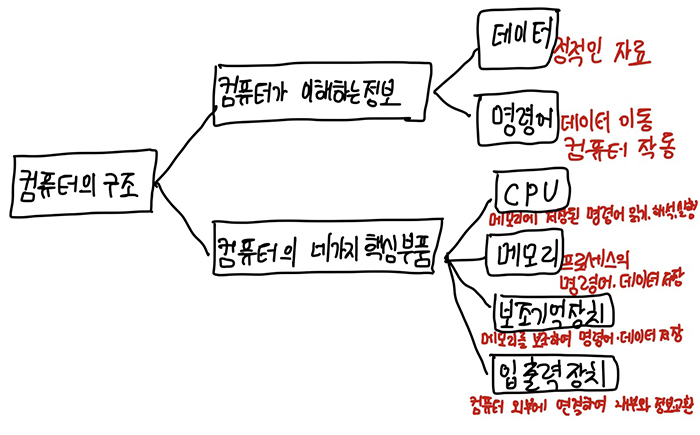 컴퓨터의 구조
컴퓨터가 이해하는 정보
데이터
정적인 자료
명령어
데이터 이동
컴퓨터 작동
컴퓨터의 네가지 핵심부품
CPU
메모리에 저장된 명령어 읽기, 해석, 실행
메모리
프로세스의
명령어·데이터 저장
보조기억장치
메모리를 보조하여 명령어·데이터 저장
입출력장치
컴퓨터 외부에 연결하여 내부와 정보교환